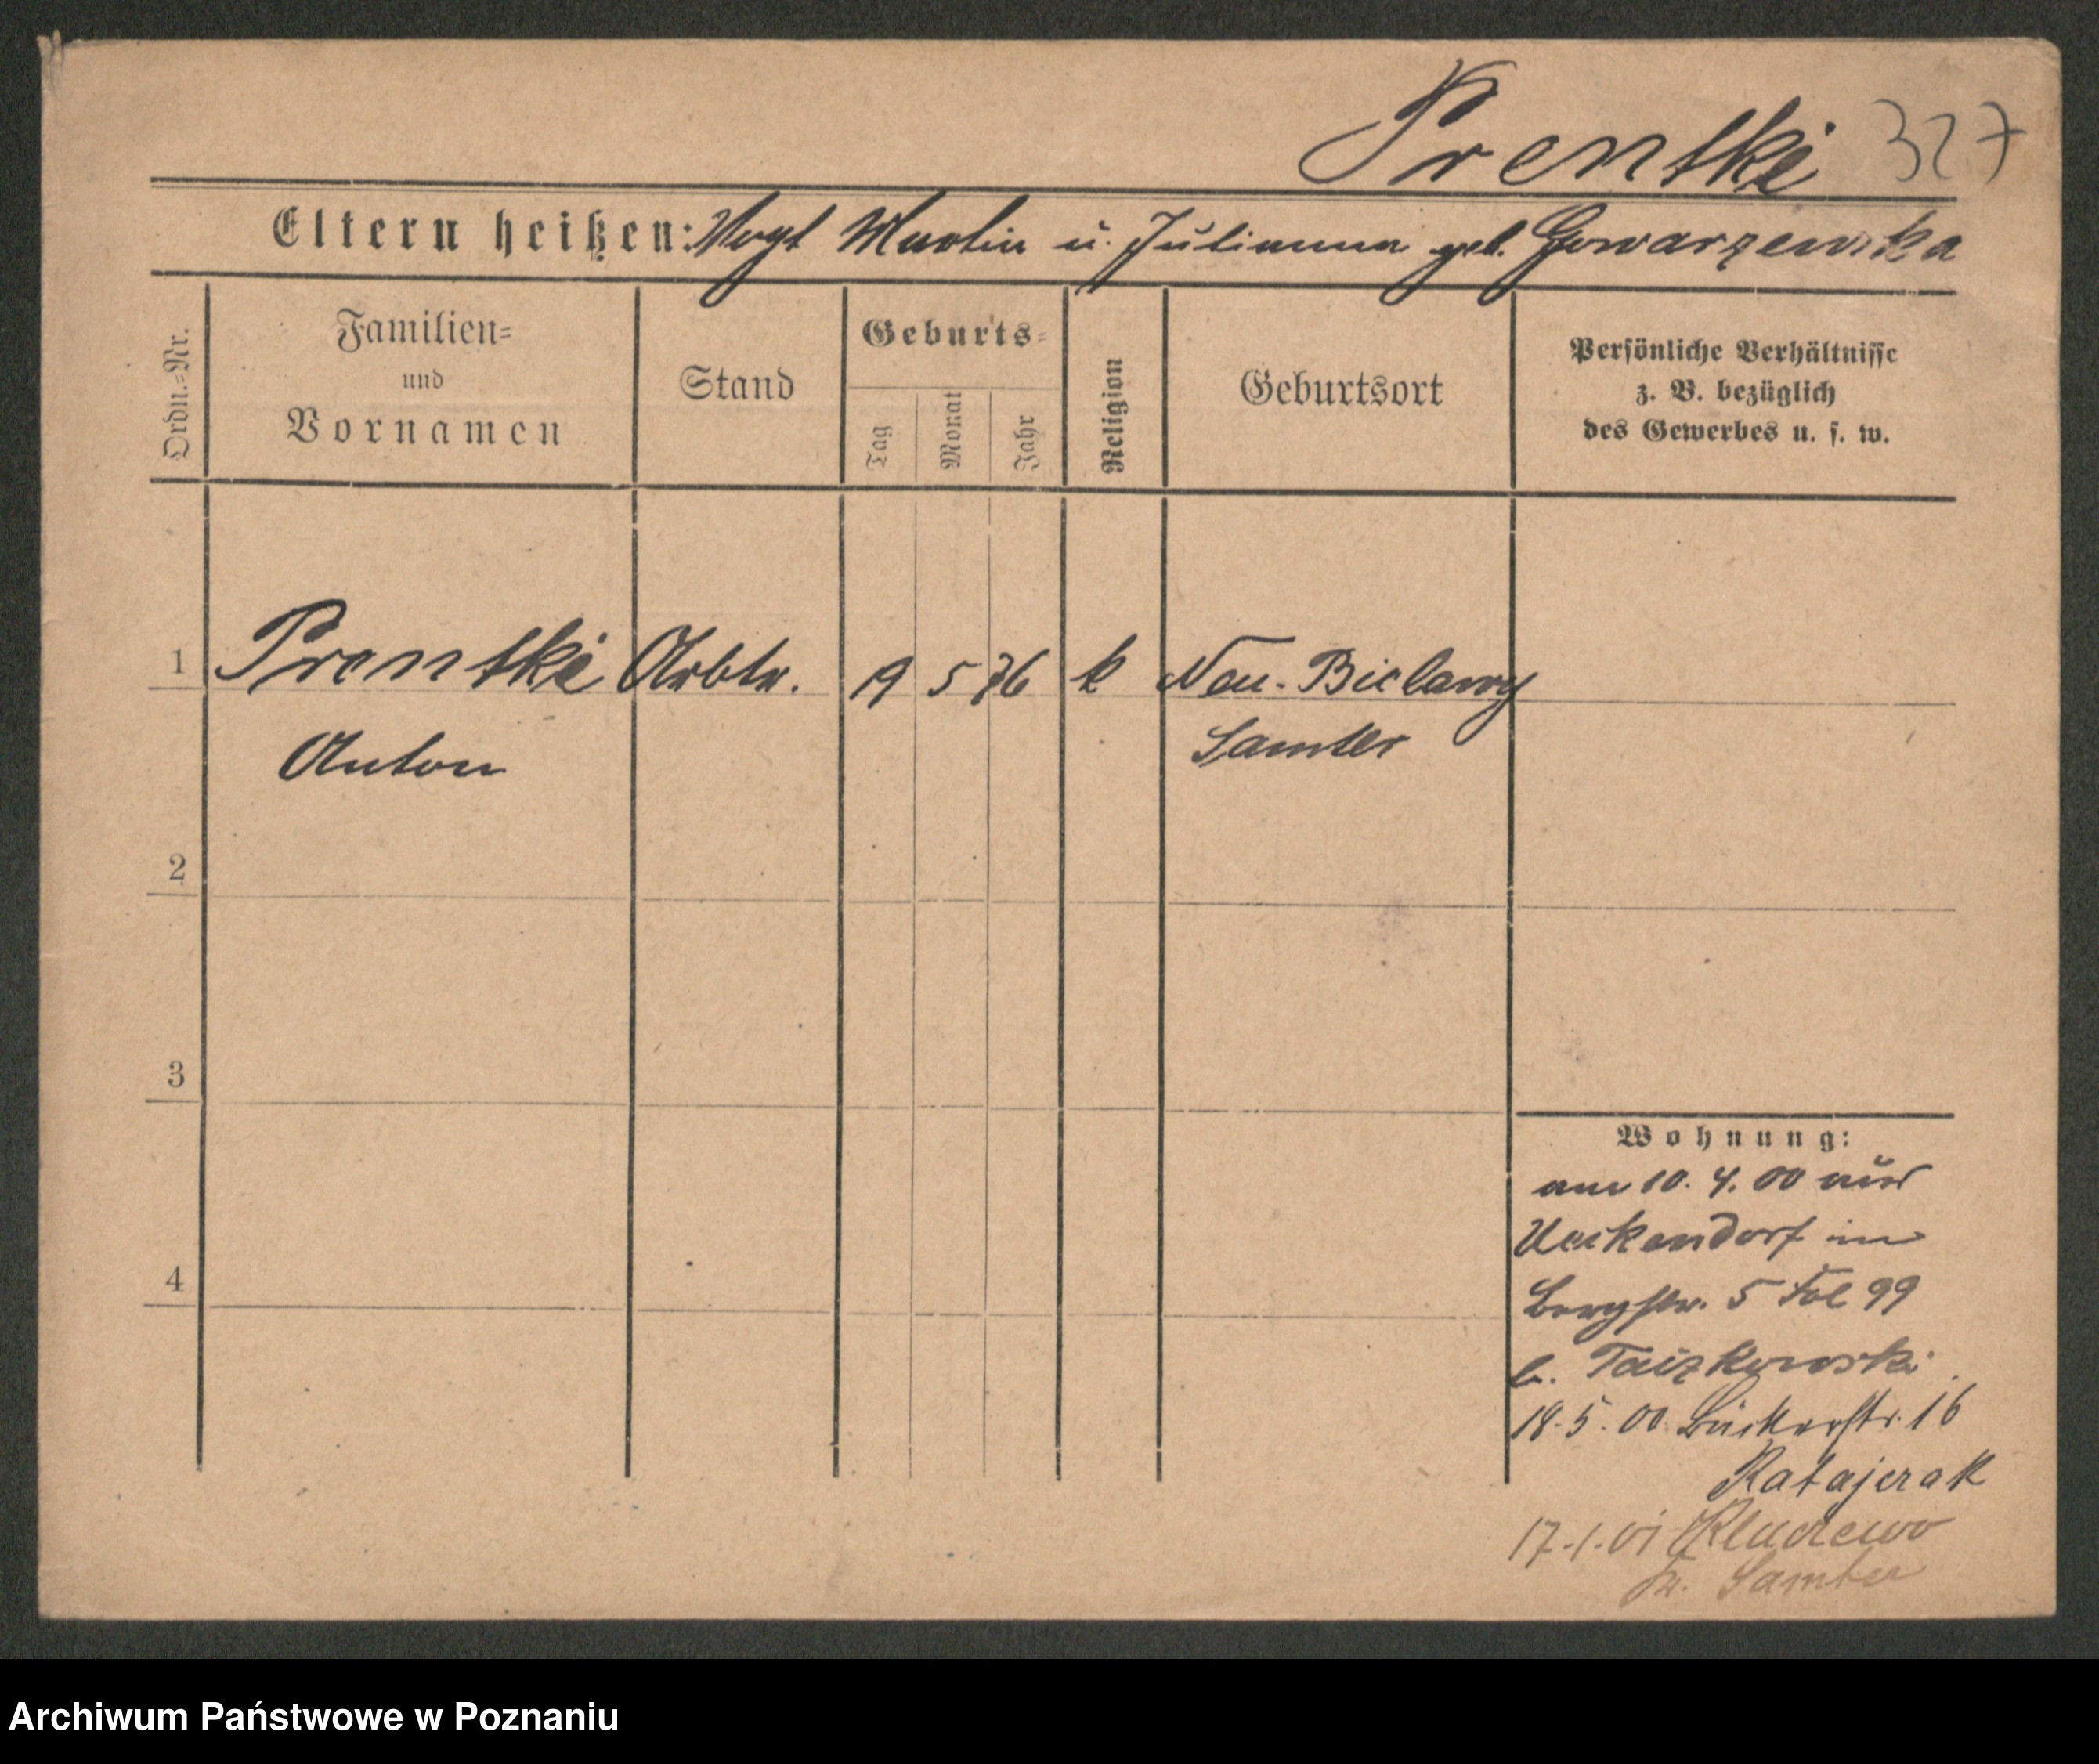 Prentki 327
Eltern heißen: Vogt Martin u. Julianna geb. Gowarzewska
Ordn.=Nr.
Familien=
und
Vornamen
Stand
Geburts=
Tag
Monat
Jahr
Religion
Geburtsort
Persönliche Verhältnisse
z. B. bezüglich
des Gewerbes u. s. w.
1 Prentki Arbtr. 19 5 76 k Neu-Bielawy
Anton Samter
2
3
4
Wohnung:
am 10. 4. 00 aus
Ueckendorf in
Bergstr. 5 99
b.
18. 5. 00 16
Ratajczak
17.1.01
Samter
Archiwum Państwowe w Poznaniu